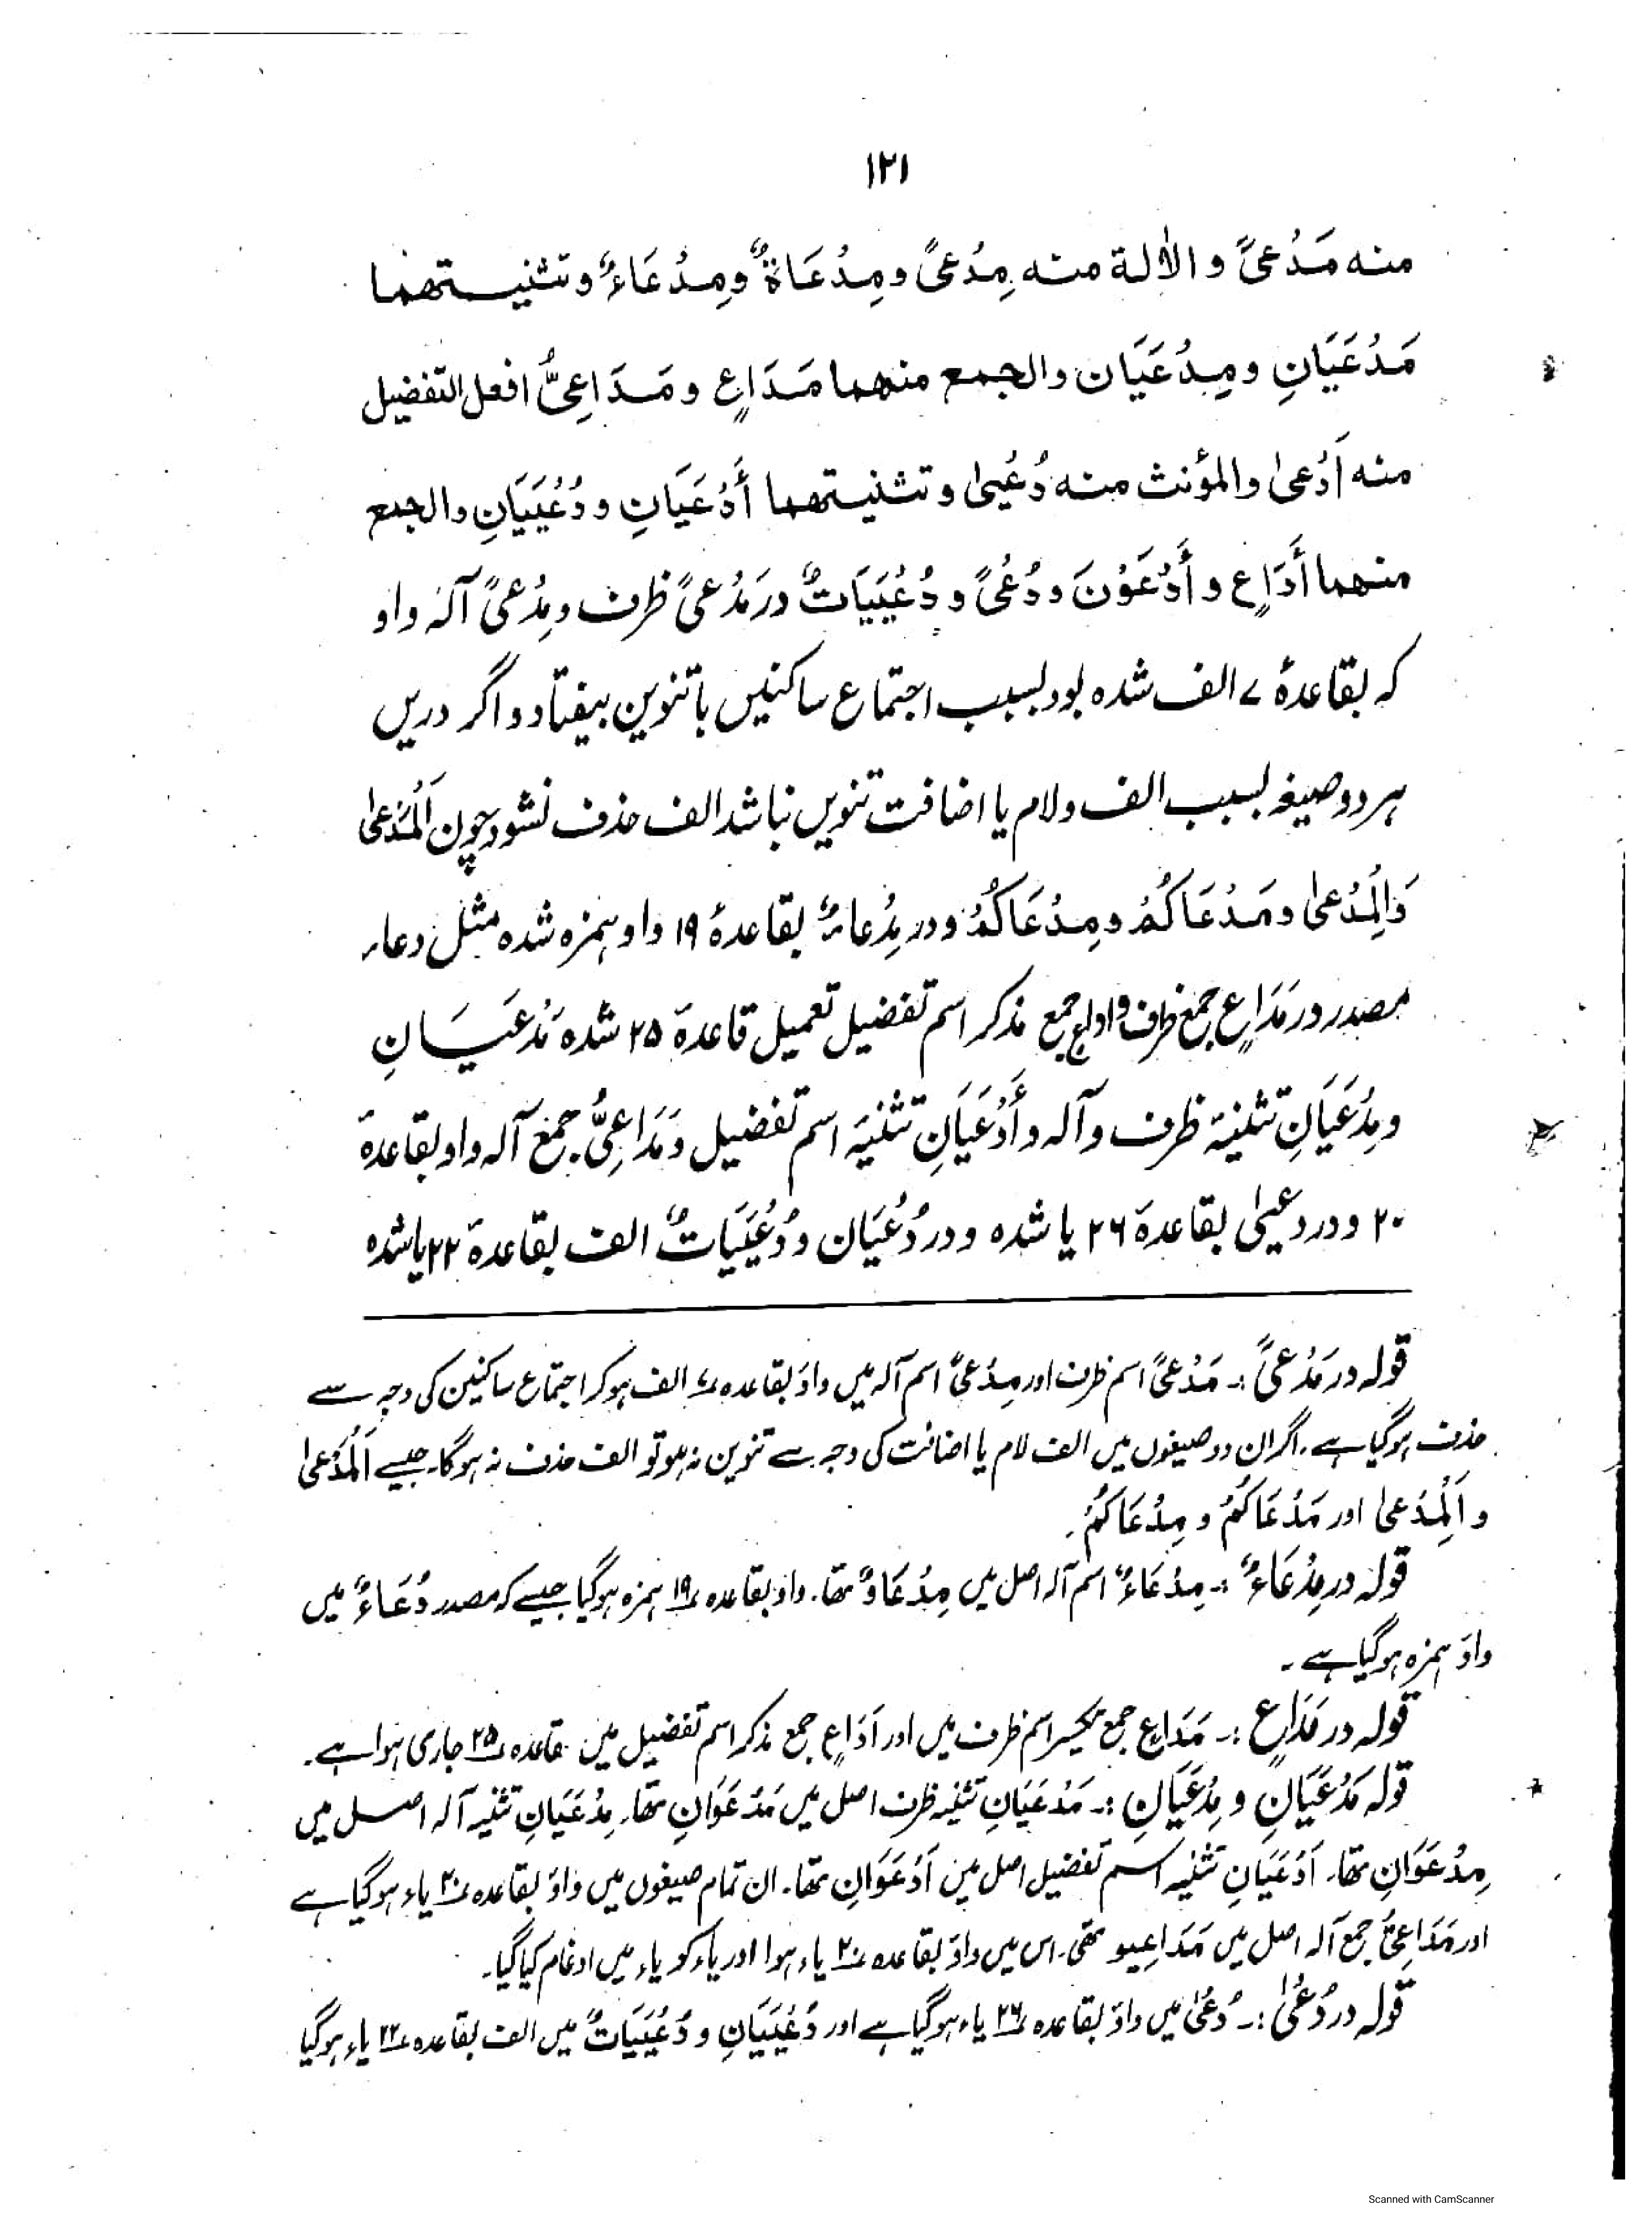 ۱۲۱
منه مَدْعیً و الاٰلة منه مِدْعیً و مِدْعَاةٌ و مِدْعَاءٌ و تثنیـتهما
مَدْعَیَانِ و مِدْعَیَان والجمع منهما مَدَاعٍ و مَدَاعِیُّ افعل التفضیل
منه اَدْعیٰ والمؤنث منه دُعْییٰ و تثنیتهما أَدْعَیَانِ و دُعْیَیَانِ والجمع
منهما أَدَاعٍ و أَدْعَوْنَ و دُعًی و دُعْیَیَاتٌ در مَدْعیً ظرف و مِدْعیً آلہ واو
کہ بقاعدۂ ۷ الف شدہ بود بسبب اجتماع ساکنین با تنوین بیفتاد و اگر دریں
ہر دو صیغہ بسبب الف ولام یا اضافت تنوین نباشد الف حذف نشود چون اَلْمَدْعیٰ
وَالْمِدْعیٰ و مَدْعَاکُمْ و مِدْعَاکُمْ و در مِدْعَاءٌ بقاعدۂ ۱۹ واو ہمزہ شدہ مثل دعاء
مصدر در مَدَاعٍ جمع ظرف و اداعٍ جمع مذکر اسم تفضیل تعمیل قاعدۃ ۲۵ شدہ مَدْعَیَـانِ
و مِدْعَیَانِ تثنیۃ ظرف و آلہ و أَدْعَیَانِ تثنیۃ اسم تفضیل و مَدَاعِیُّ جمع آلہ واو بقاعدۃ
۲۰ و در دعییٰ بقاعدۃ ۲۶ یا شدہ و در دُعْیَیَان و دُعْیَیَاتٌ الف بقاعدۃ ۲۲ یا شدہ
قولہ در مَدْعیً :۔ مَدْعیً اسم ظرف اور مِدْعیً اسم آلہ میں واؤ بقاعدہ ۷ الف ہوکر اجتماع ساکنین کی وجہ سے
حذف ہوگیا ہے۔ اگر ان دو صیغوں میں الف لام یا اضافت کی وجہ سے تنوین نہ ہو تو الف حذف نہ ہوگا۔ جیسے اَلْمَدْعیٰ
و اَلْمِدْعیٰ اور مَدْعَاکُمْ و مِدْعَاکُمْ۔
قولہ در مِدْعَاءٌ :۔ مِدْعَاءٌ اسم آلہ اصل میں مِدْعَاوٌ تھا۔ واؤ بقاعدہ ۱۹ ہمزہ ہوگیا جیسے کہ مصدر دُعَاءٌ میں
واؤ ہمزہ ہوگیا ہے۔
قولہ در مَدَاعٍ :۔ مَدَاعٍ جمع تکسیر اسم ظرف میں اور اَدَاعٍ جمع مذکر اسم تفضیل میں قاعدہ ۲۵ جاری ہوا ہے۔
قولہ مَدْعَیَانِ و مِدْعَیَانِ :۔ مَدْعَیَانِ تثنیہ ظرف اصل میں مَدْعَوَانِ تھا۔ مِدْعَیَانِ تثنیہ آلہ اصل میں
مِدْعَوَانِ تھا۔ اَدْعَیَانِ تثنیہ اسم تفضیل اصل میں اَدْعَوَانِ تھا۔ ان تمام صیغوں میں واؤ بقاعدہ ۲۰ یاء ہوگیا ہے
اور مَدَاعِیُّ جمع آلہ اصل میں مَدَاعِیو تھی۔ اس میں واؤ بقاعدہ ۲۰ یاء ہوا اور یاء کو یاء میں ادغام کیا گیا۔
قولہ در دُعْیٰ :۔ دُعْیٰ میں واؤ بقاعدہ ۲۶ یاء ہوگیا ہے اور دُعْیَیَانِ و دُعْیَیَاتٌ میں الف بقاعدہ ۲۲ یاء ہوگیا
Scanned with CamScanner